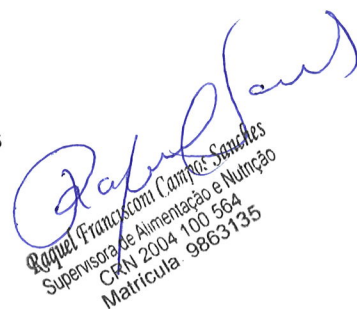 Raquel Francisconi Campos Sanches
Supervisora de Alimentação e Nutrição
CRN 2004 100 564
Matrícula: 9863135